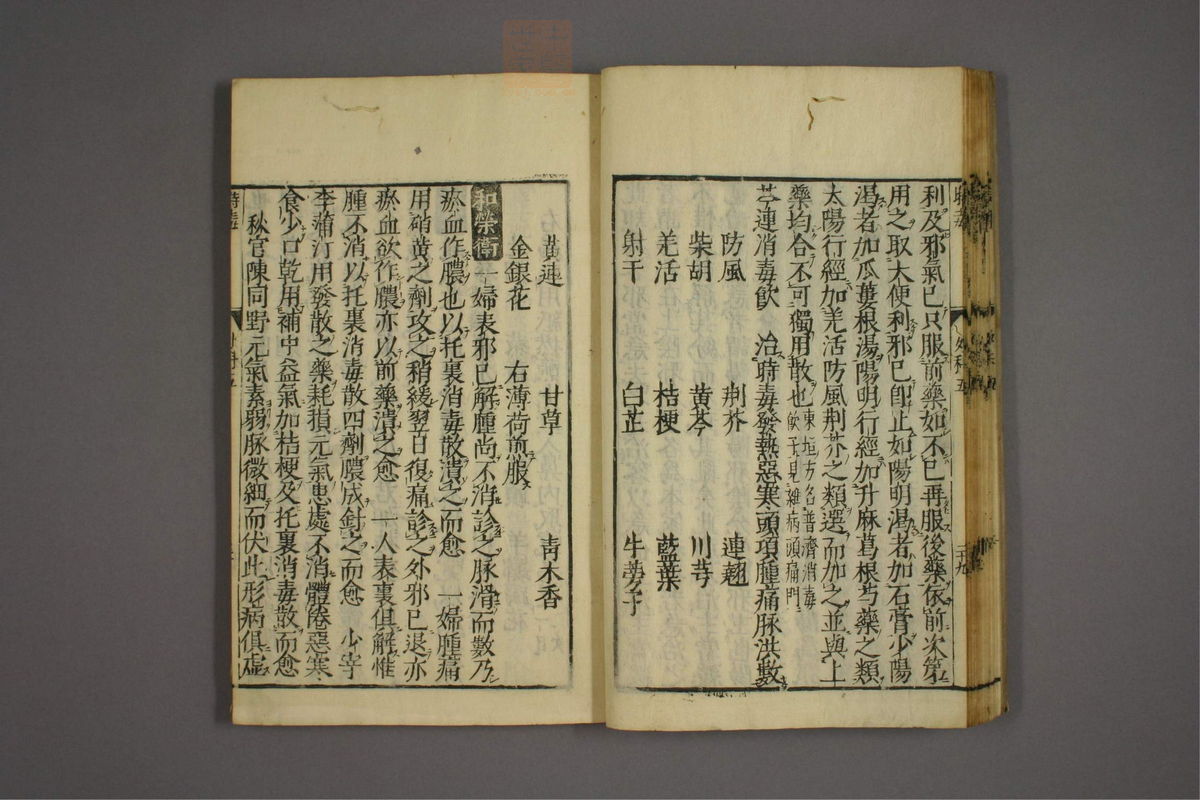 利及邪氣已只服前藥如不已再服後藥依前次第
用之取大便利邪已卽止如陽明渴者加石膏少陽
渴者加瓜蔞根湯陽明行經加升麻葛根芍藥之類
太陽行經加羌活防風荆芥之類選而加之並與上
藥均合不可獨用散也東垣方名普濟消毒飲子見雜病頭痛門
芩連消毒飲 治時毒發熱惡寒頭項腫痛脉洪數
防風 荆芥 連翹
柴胡 黄芩 川芎
羌活 桔梗 藍葉
射干 白芷 牛蒡子
黄連 甘草 青木香
金銀花 右薄荷煎服
和榮衛 一婦表邪已解腫尚不消診之脉滑而數乃
瘀血作膿也以托裏消毒散潰之而愈 一婦腫痛
用硝黄之劑攻之稍緩翌日復痛診之外邪已退亦
瘀血欲作膿亦以前藥潰之愈 一人表裏俱解惟
腫不消以托裏消毒散四劑膿成針之而愈 少宰
李蒲汀用發散之藥耗損元氣患處不消體倦惡寒
食少口乾用補中益氣加桔梗及托裏消毒散而愈
秋官陳同野元氣素弱脉微細而伏此形病俱虛